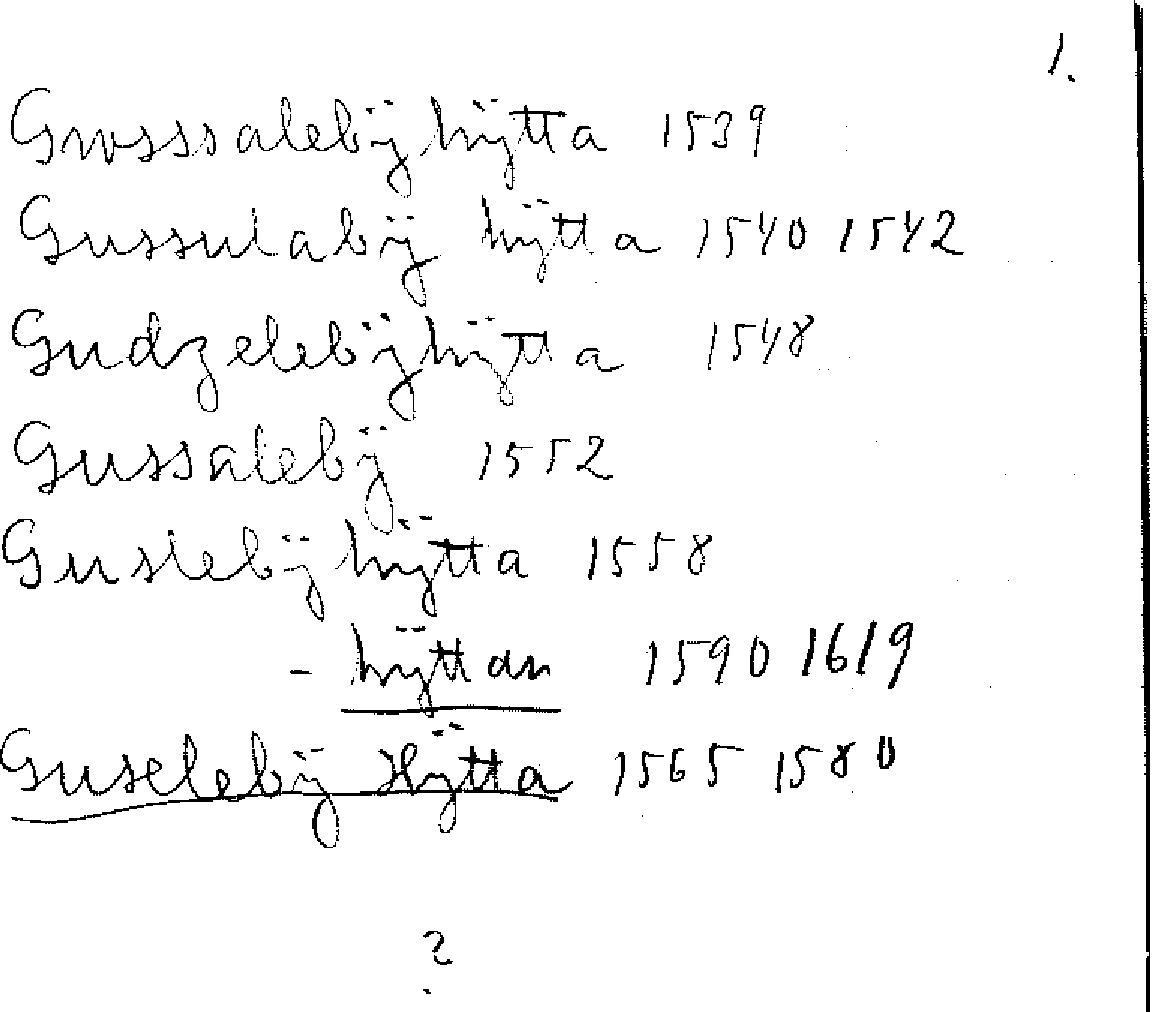 1.
Gwsssalebÿhÿtta 1539
Gussulabÿ hÿtta 1540 1542
Gudzelebÿhÿtta 1548
Gussalebÿ 1552
Guslebÿ hÿtta 1558
- hÿttan 1590 1619
Guselebÿ Hÿtta 1565 1580
?